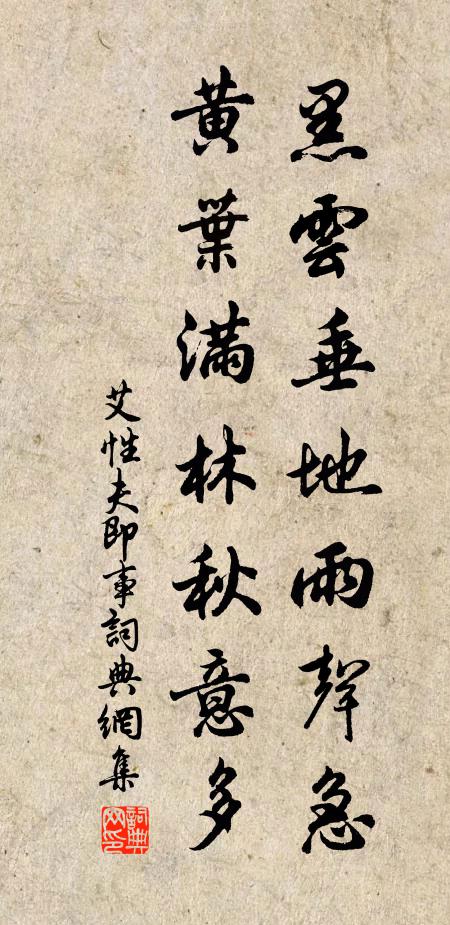 黑雲垂地雨聲急
黃葉滿林秋意多
艾性夫即事詞典網集
詞典网印